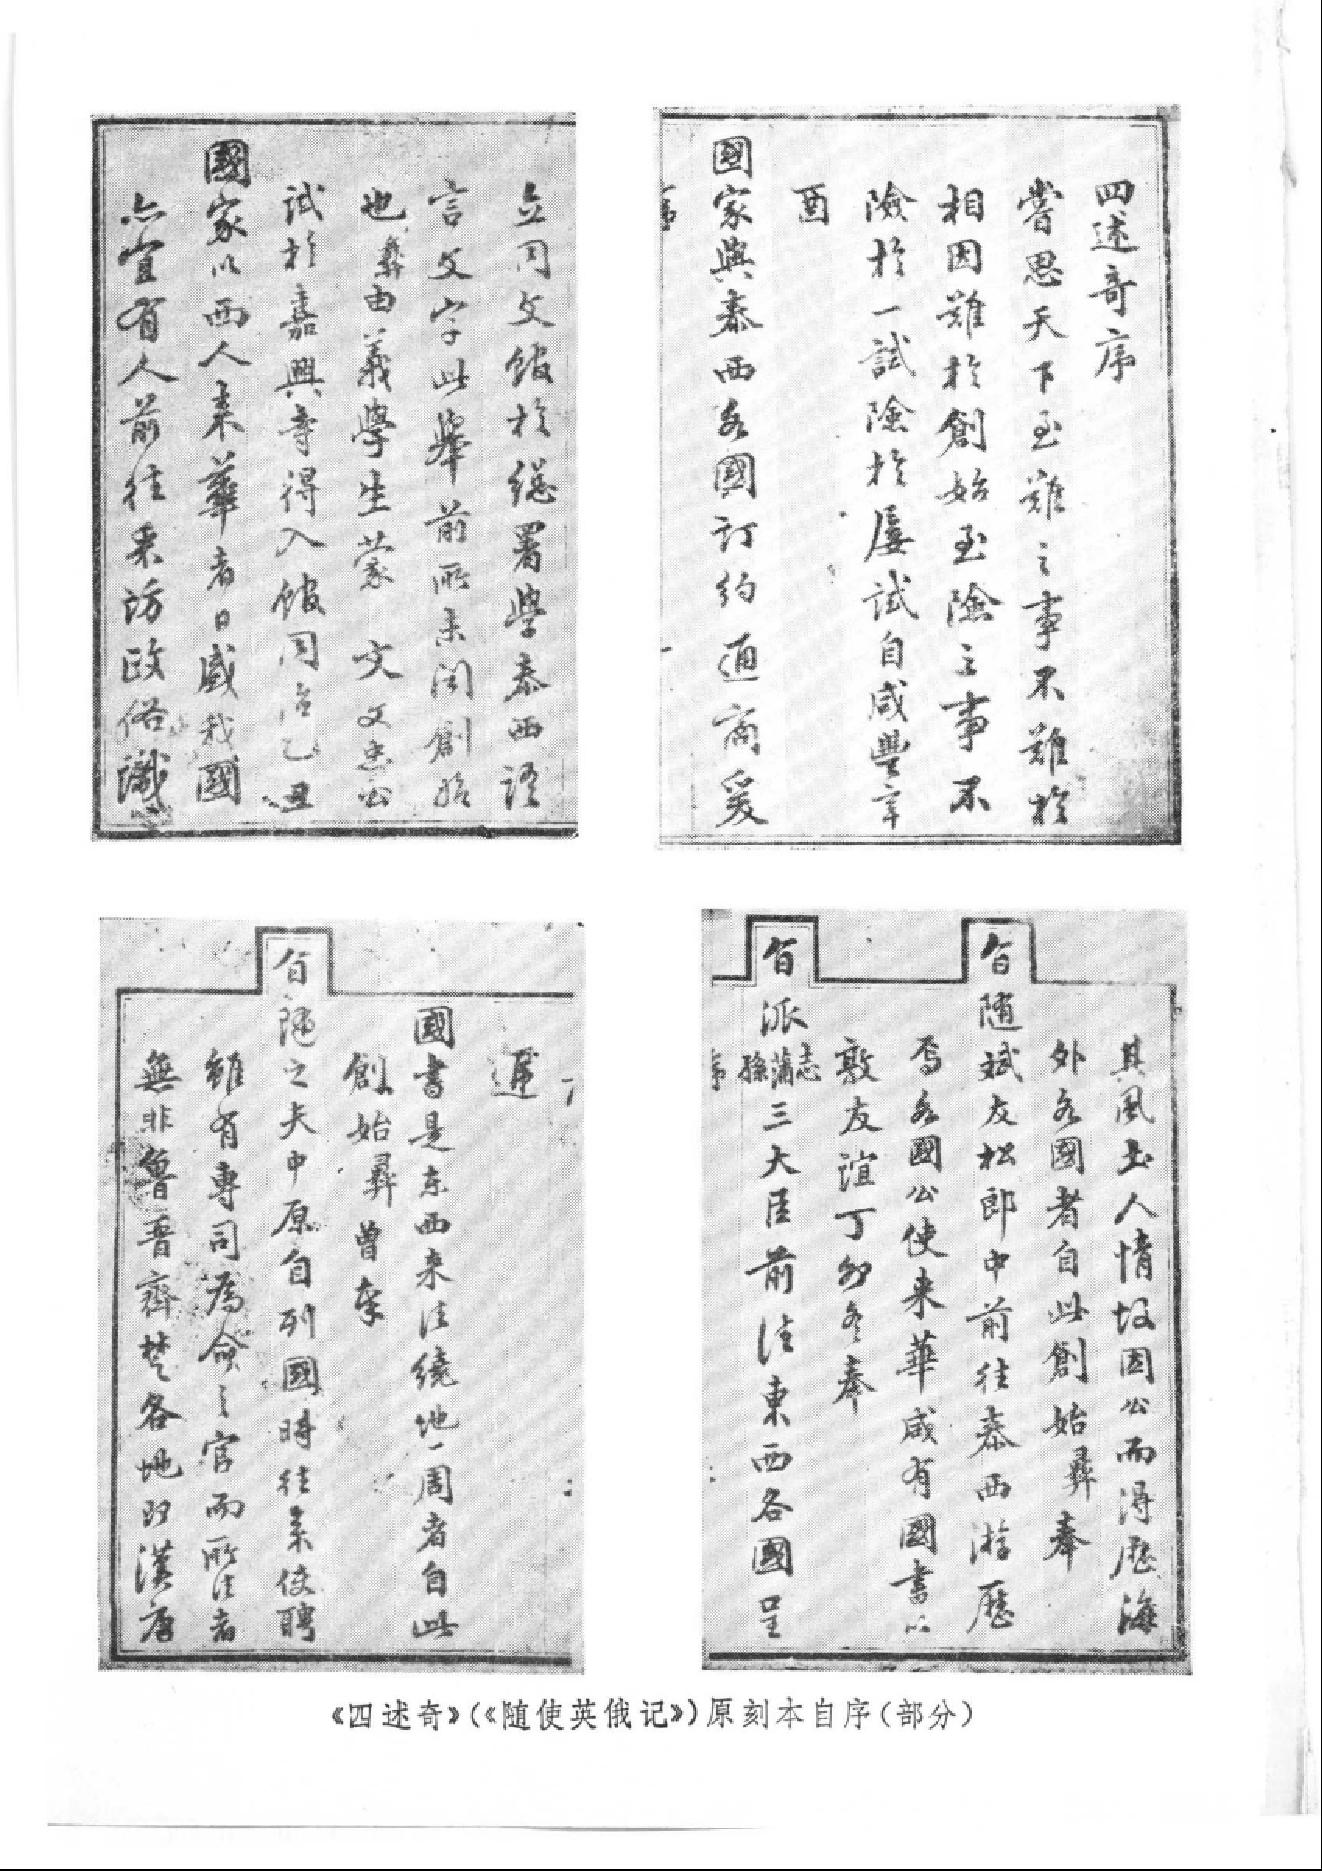 四述奇序
嘗思天下至難之事不難於
相因難於創始至險之事不
險於一試險於屢試自咸豐辛
酉
國家與泰西各國訂約通商爰
序
立同文館於總署學泰西語
言文字此舉前所未聞創始
也彝由義學生蒙 文文忠公
試於嘉興寺得入館同治乙丑
國家以西人来華者日盛我國
亦宜有人前往采訪政俗識
其風土人情故因公而得歷海
外各國者自此創始彝奉
旨隨斌友松郎中前往泰西游歷
焉各國公使来華咸有國書以
敦友誼丁卯冬奉
旨派志蒲孫三大臣前往東西各國呈
序
遞
國書是東西来往繞地一周者自此
創始彝曾奉
旨隨之夫中原自列國時往来使聘
雖有專司為命之官而所往者
無非魯晋齊楚各地即漢唐
《四述奇》(《随使英俄记》)原刻本自序(部分)